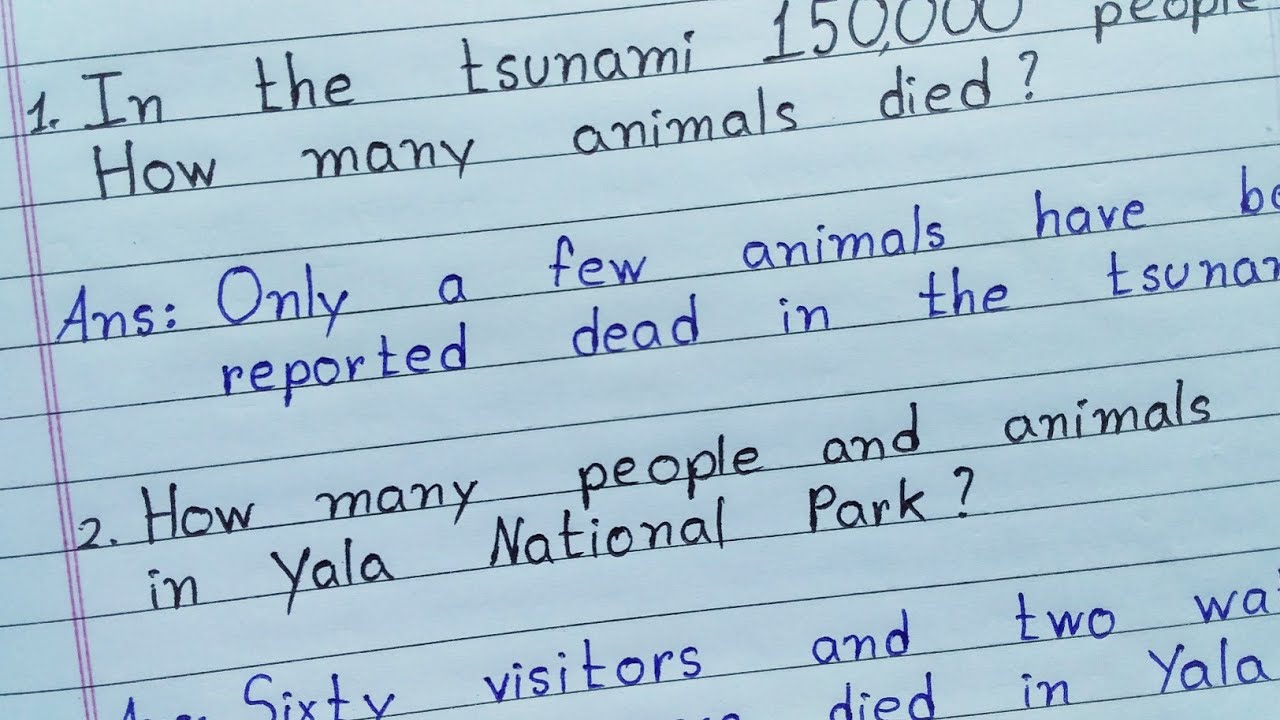 1. In the tsunami 150,000 people
How many animals died?
Ans: Only a few animals have be
reported dead in the tsunam
2. How many people and animals
in Yala National Park?
Sixty visitors and two wa
died in Yala